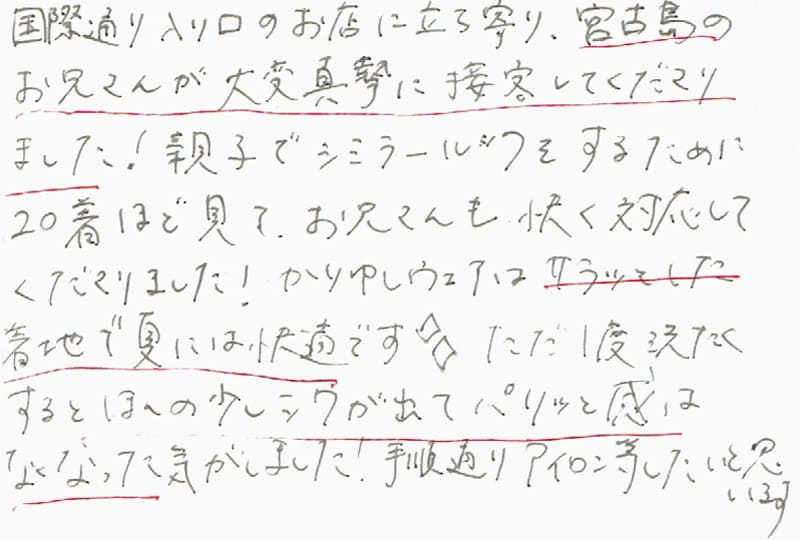 国際通り入り口のお店に立ち寄り、宮古島の
お兄さんが大変真摯に接客してくださり
ました！親子でシミラールックをするために
20着ほど見て、お兄さんも快く対応して
くださりました！かりゆしウェアはサラッとした
着地で夏には快適です ただ1度洗たく
するとほんの少しシワが出てパリッと感は
なくなった気がしました！手順通りアイロン等したいと思
います